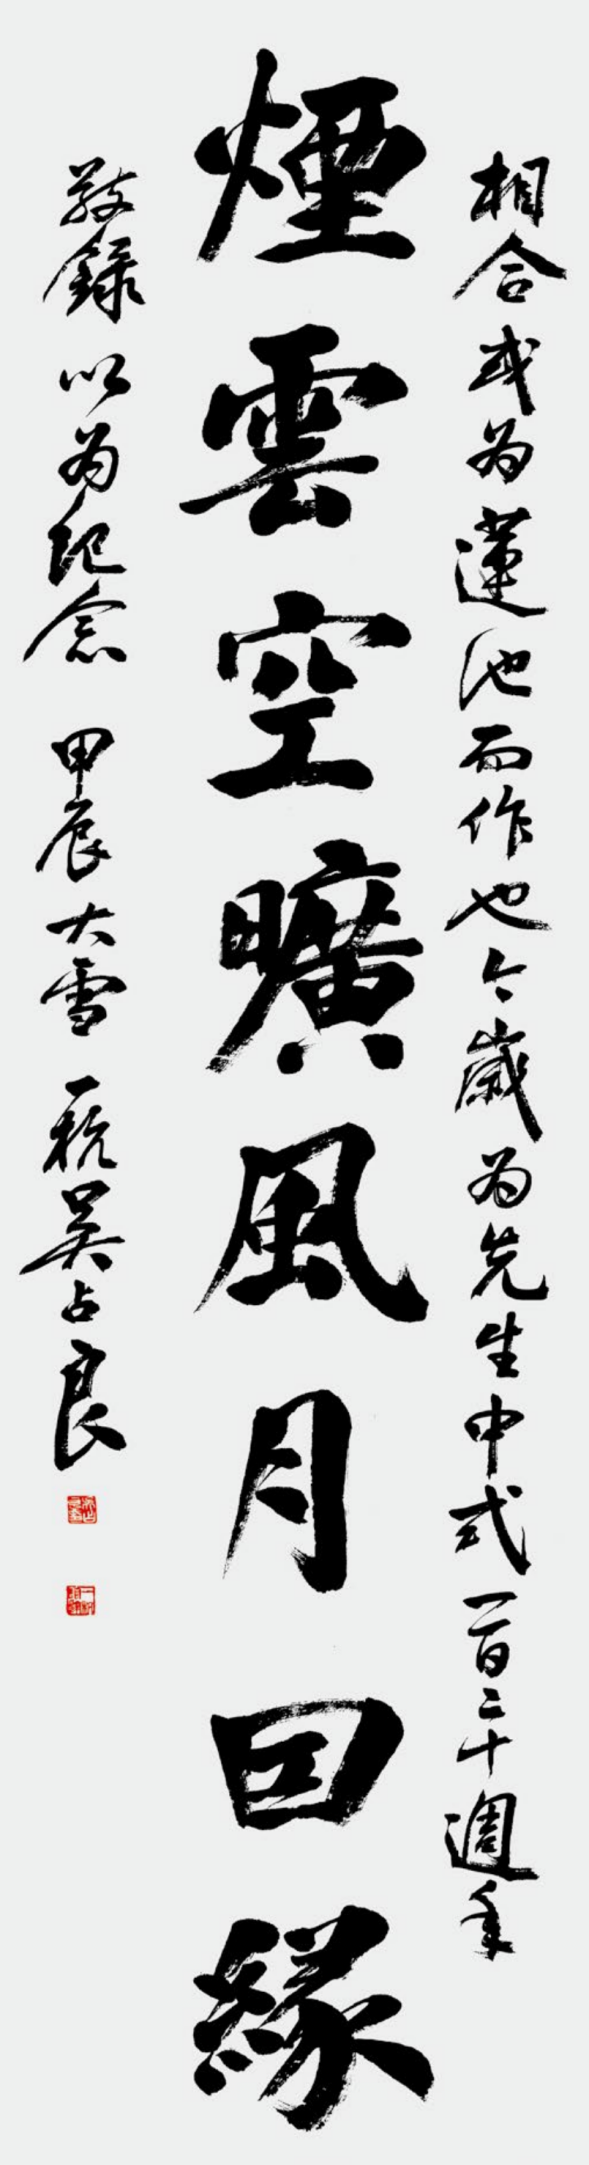 相合或为蓮池而作也今歲为先生中式一百二十週年
煙雲空曠風月因緣
敬錄以为紀念 甲辰大雪 一杭吴占良